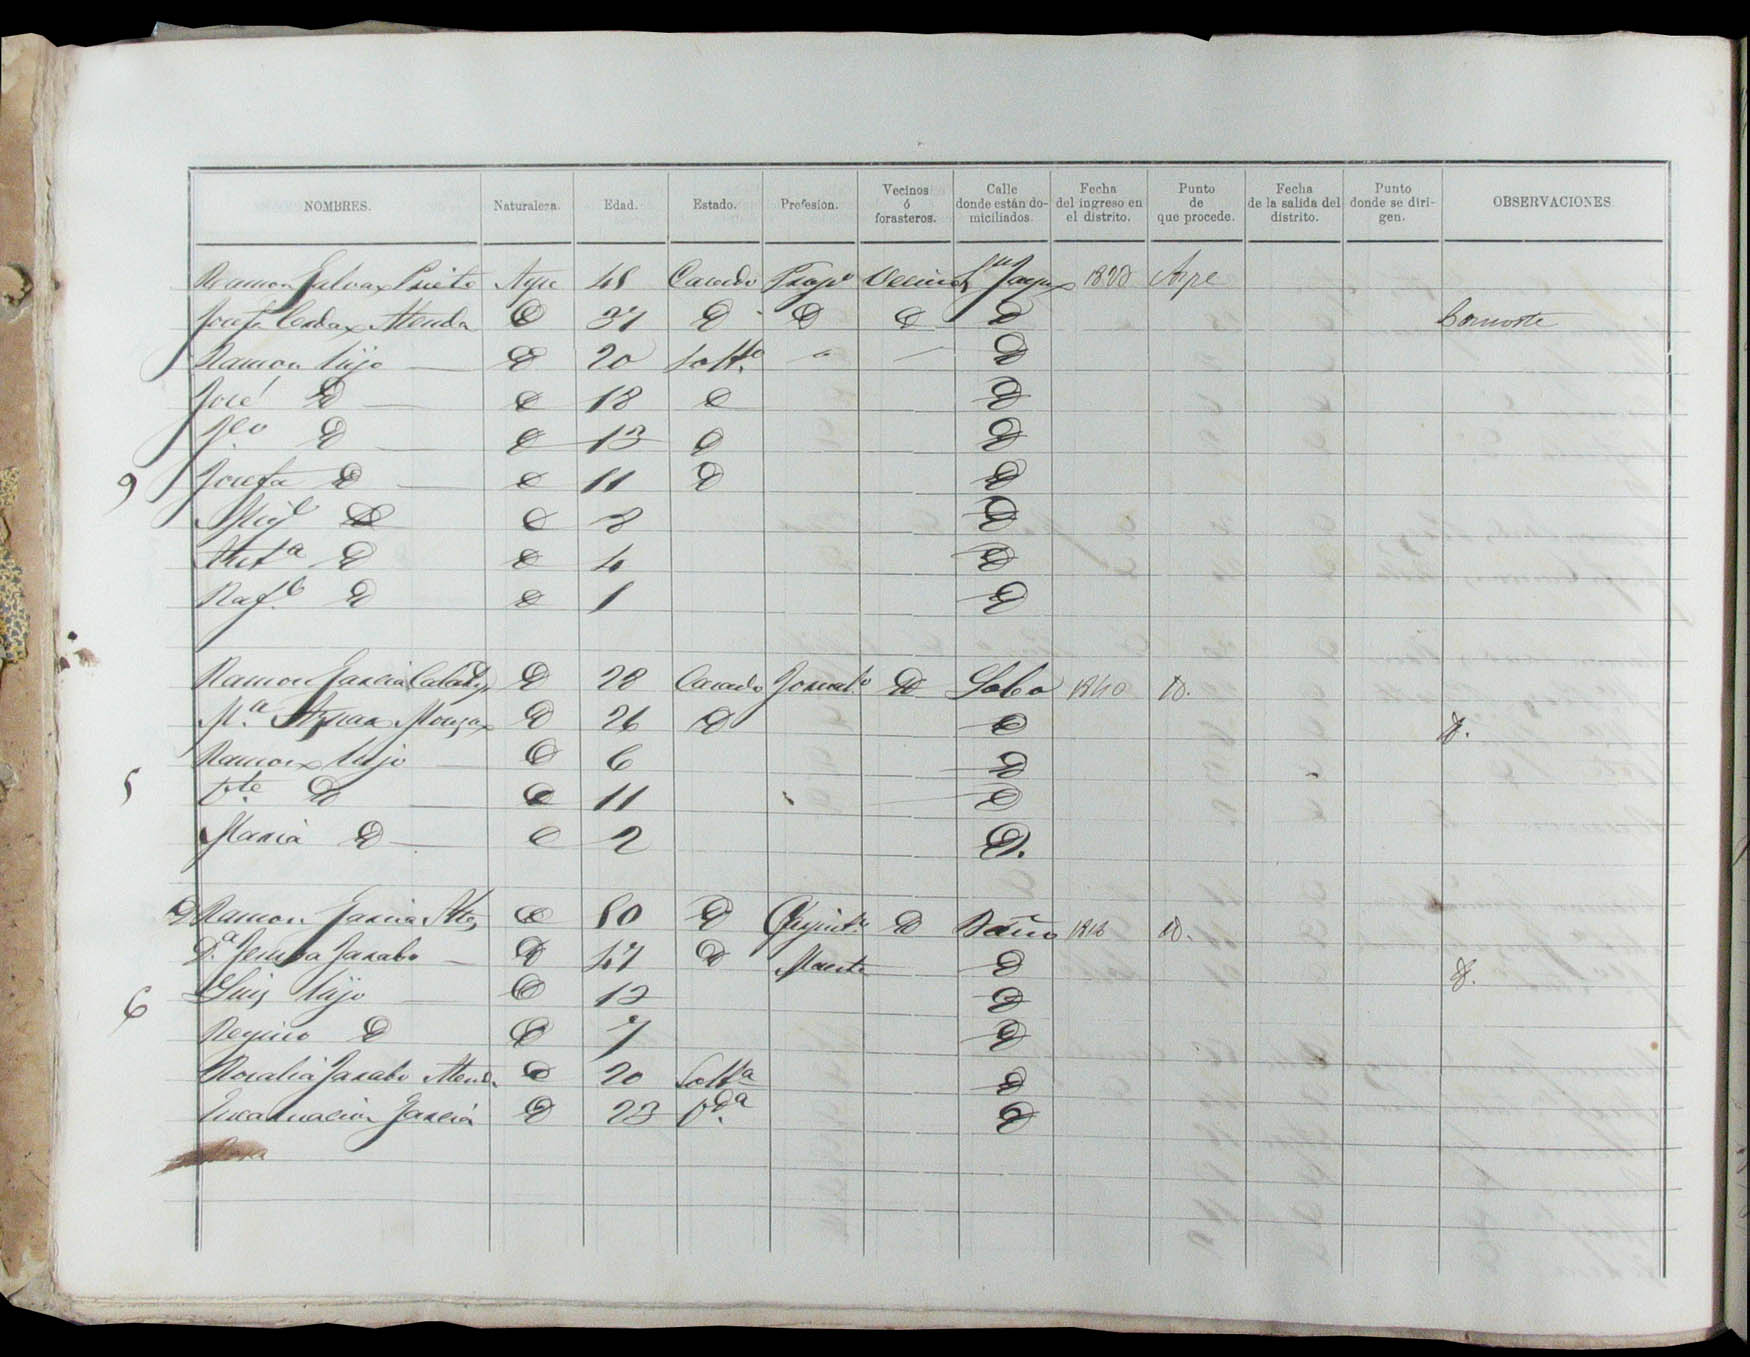 NOMBRES. Naturaleza. Edad. Estado. Profesion. Vecinos ó forasteros. Calle donde están domiciliados. Fecha del ingreso en el distrito. Punto de que procede. Fecha de la salida del distrito. Punto donde se dirigen. OBSERVACIONES.
Ramon Galvax Prieto Aspe 45 Casado Propº Vecino 1820 Aspe
Josefa Cerdax D 37 D D D D Consorte
Ramon hijo D 20 Soltº D
José D D 18 D D
D D 13 D D
9 Josefa D D 11 D D
Migl D D 8 D
Antª D D 4 D
Rafl D D 1 D
Ramon Garcia D 28 Casado Jornalº D 1840 D.
Mª D 26 D D D.
Ramon hijo D 6 D
5 Vte D D 11 D
Maria D D 2 D.
D Ramon Garcia D 50 D D 1816 D.
Dª Jarabo D 47 D Maestra D D.
6 Luis hijo D 12 D
Regino D D 7 D
Rosalia Jarabo D 20 Soltª D
Encarnacion Garcia D 23 Vdª D